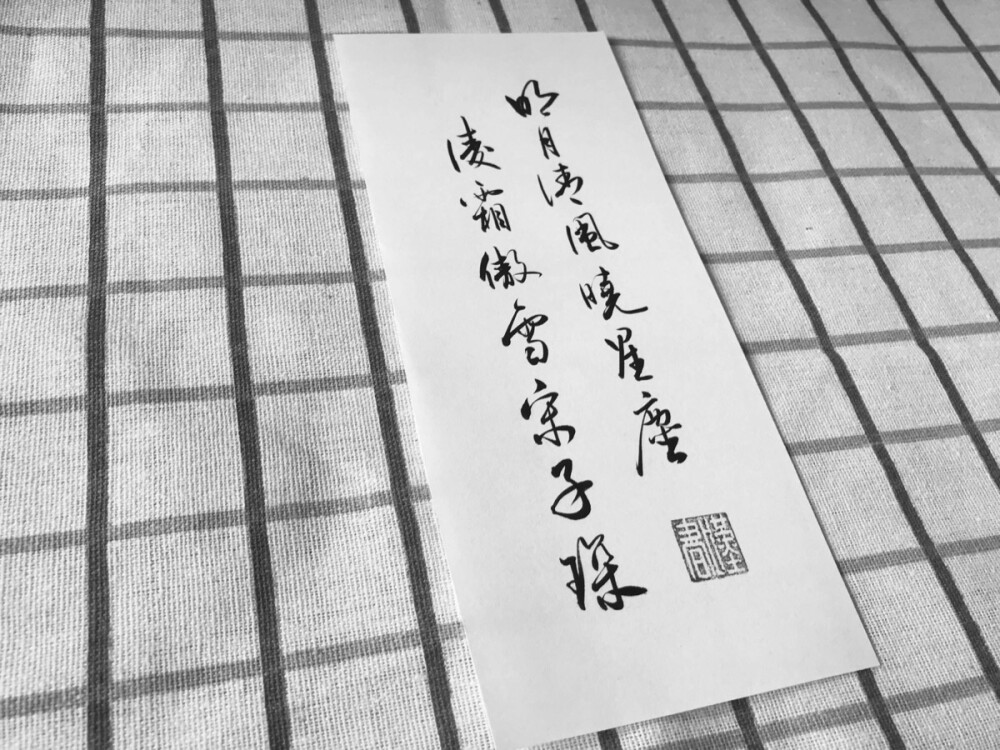 明月清風曉星塵
凌霜傲雪宋子琛